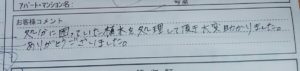 アパート・マンション名
号室
お客様コメント
処分に困っていた植木を処理して頂き大変助かりました。
ありがとうございました。